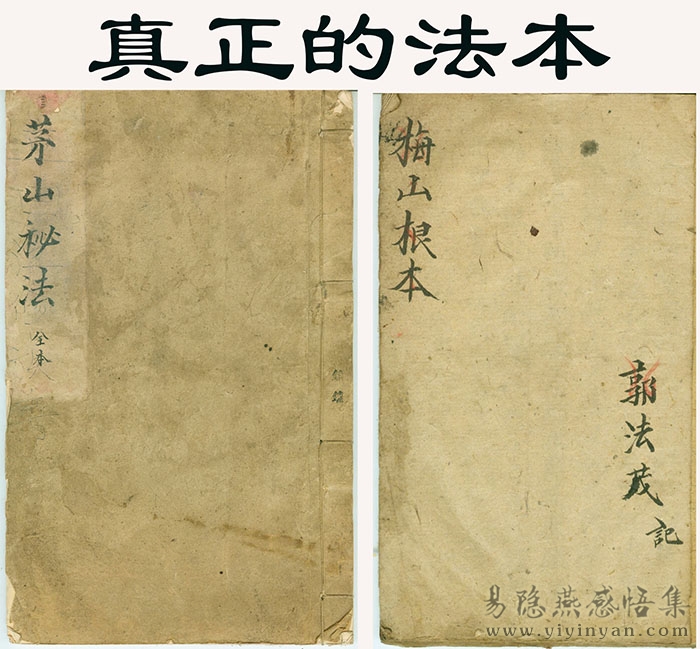 真正的法本
茅山秘法
全本
梅山根本
郭法茂
記
易隐燕感悟集
www.yiyinyan.com